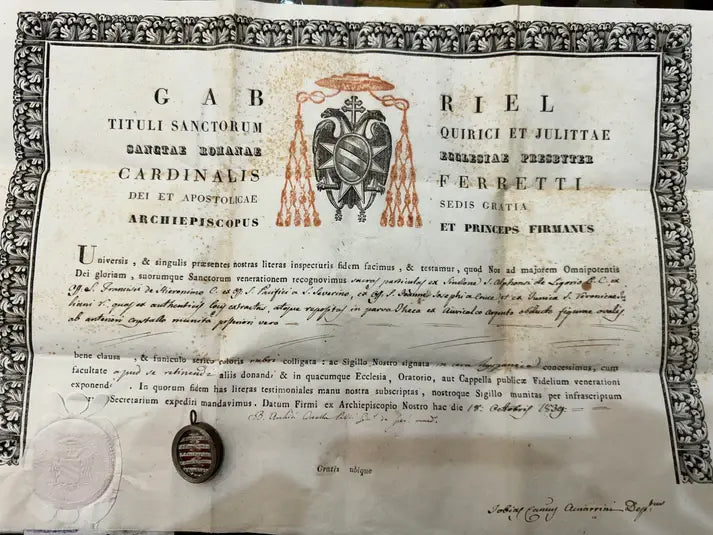 GABRIEL
TITULI SANCTORUM QUIRICI ET JULITTAE
SANCTAE ROMANAE ECCLESIAE PRESBYTER
CARDINALIS FERRETTI
DEI ET APOSTOLICAE SEDIS GRATIA
ARCHIEPISCOPUS ET PRINCEPS FIRMANUS
Universis, & singulis præsentes nostras literas inspecturis fidem facimus, & testamur, quod Nos ad majorem Omnipotentis
Dei gloriam, suorumque Sanctorum venerationem recognovimus sacras particulas ex S. Alphonsi de Ligorio E. C. ex
S. Francisci de Hieronimo C. ex S. Pacifici a S. Severino, ex S. Joannis Josephi a Cruce et ex
V. quas ex authenticis extractas, atque repositas in parva theca ex auricalco argento obducto figurae ovalis
ab anteriori crystallo munita posteriori vero
bene clausa, & funiculo serico coloris rubri colligata: ac Sigillo Nostro signata in cera concessimus, cum
facultate apud se retinendi aliis donandi & in quacumque Ecclesia, Oratorio, aut Cappella publicæ Fidelium venerationi
exponendi. In quorum fidem has literas testimoniales manu nostra subscriptas, nostroque Sigillo munitas per infrascriptum
Secretarium expediri mandavimus. Datum Firmi ex Archiepiscopio Nostro hac die 18. Octobris 1839
Gratis ubique